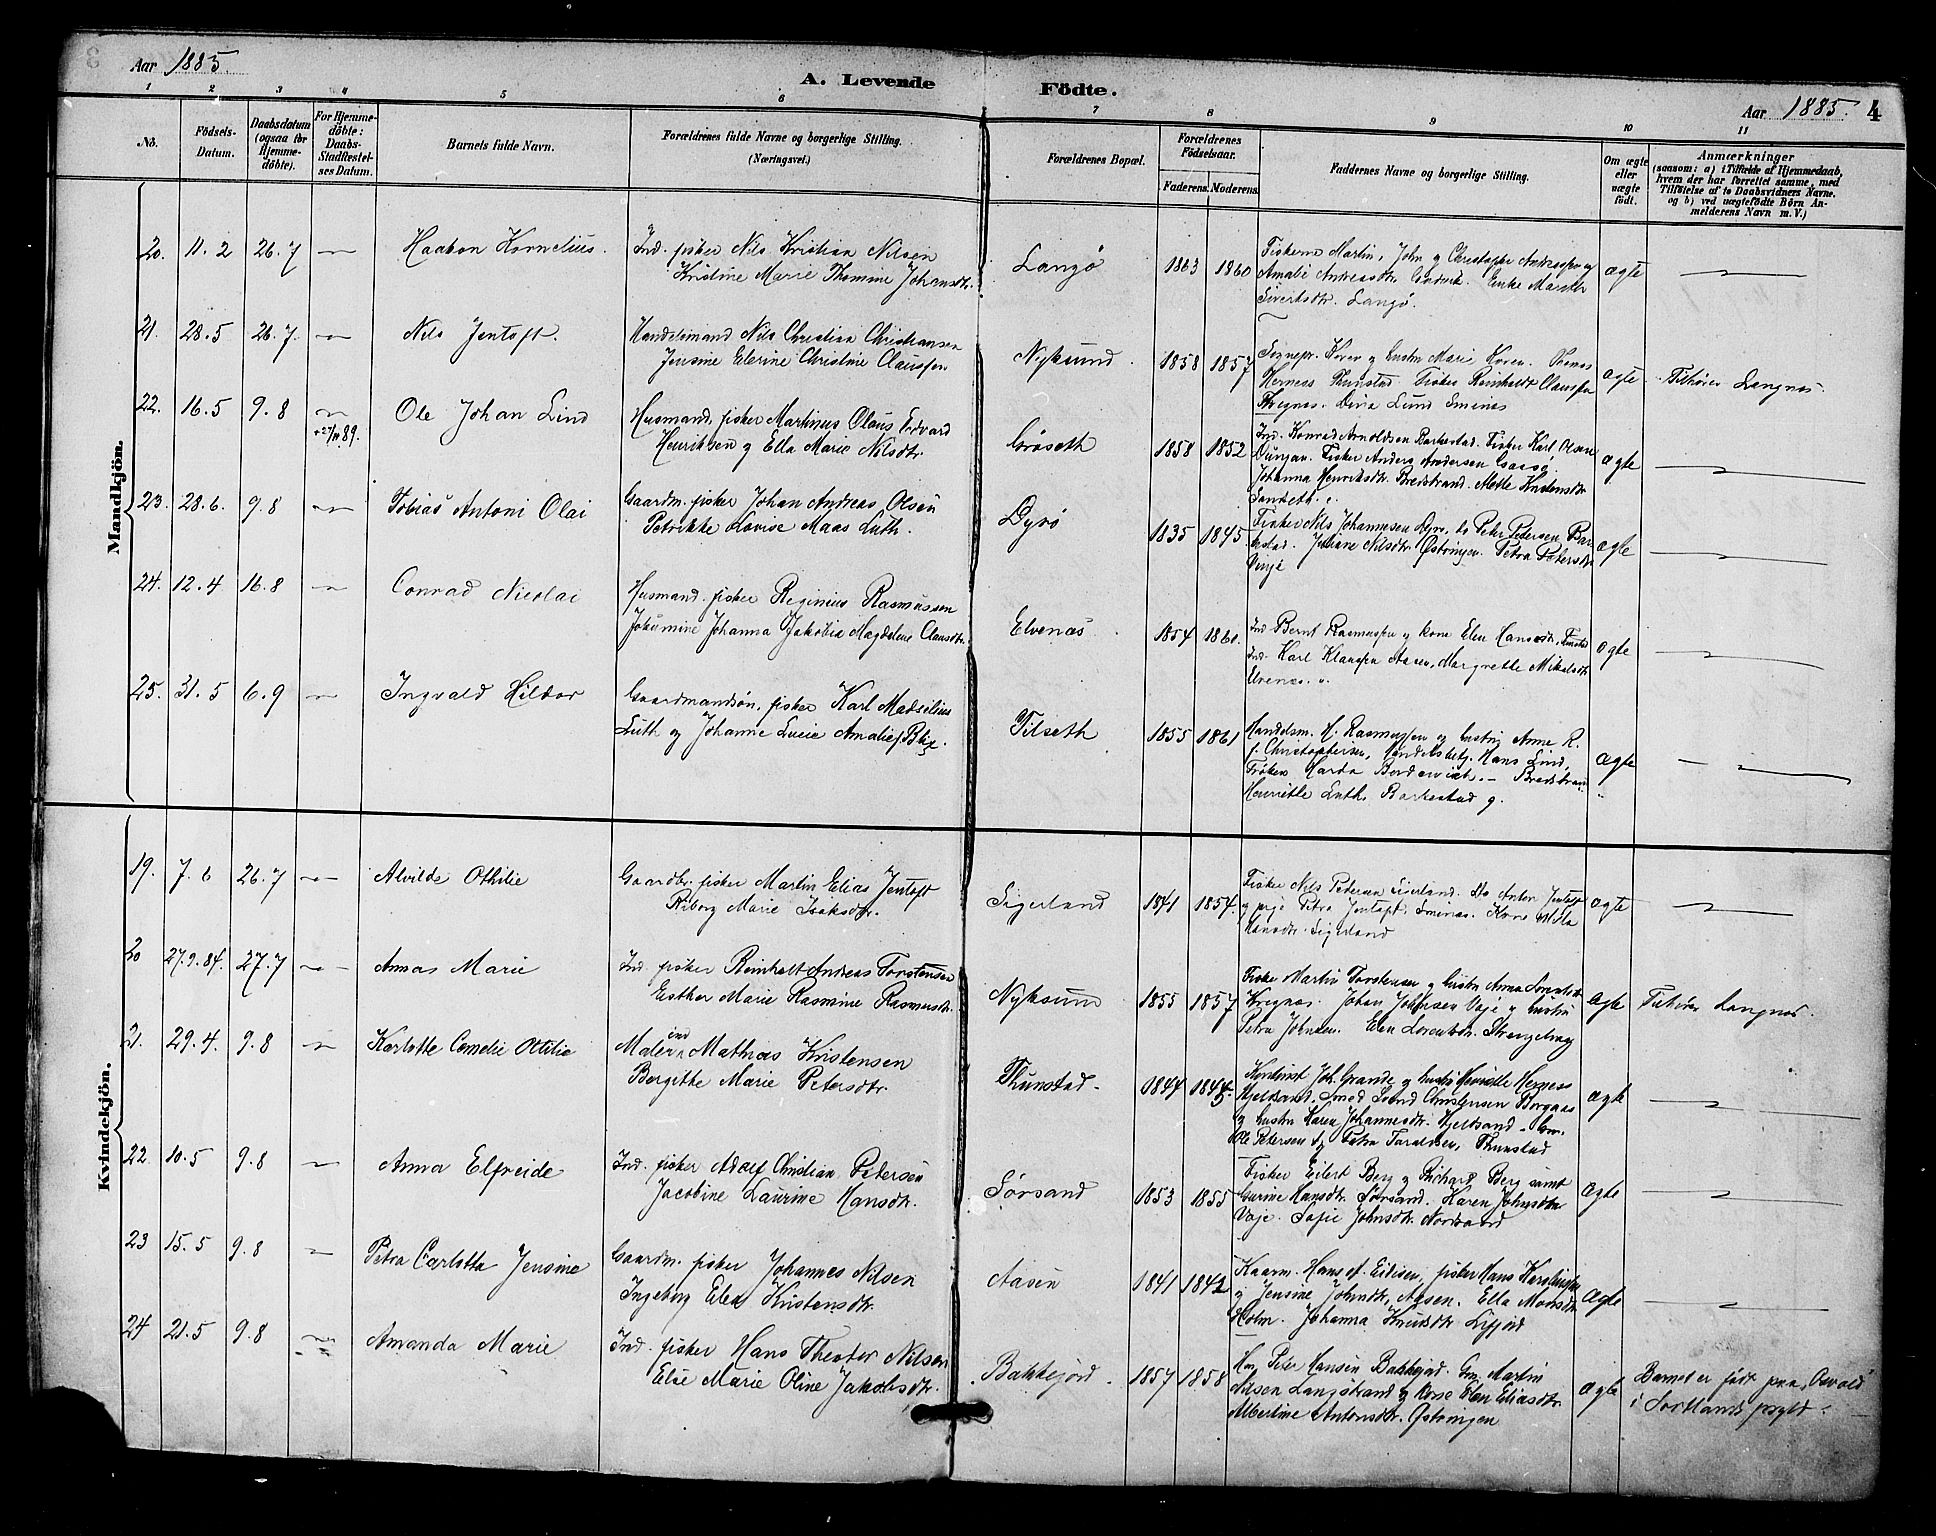 Aar 1885.
A. Levende Födte.
Aar 1885. 4
1 2 3 4 5 6 7 8 9 10 11
No.
Födsels-
Datum.
Daabsdatum
(ogsaa for
Hjemme-
döbte).
For Hjemme-
döbte:
Daabs-
Stadfestel-
ses Datum.
Barnets fulde Navn.
Forældrenes fulde Navne og borgerlige Stilling.
(Næringsvei.)
Forældrenes Bopæl.
Forældrenes
Födselsaar.
Faderens. Moderens.
Faddernes Navne og borgerlige Stilling.
Om ægte
eller
uægte
födt.
Anmærkninger
(saasom: a) i Tilfælde af Hjemmedaab,
hvem der har forrettet samme, med
Tilföielse af to Daabsvidners Navne.
og b) ved uægtefödte Börn An-
melderens Navn m. V.)
Mandkjön.
20. 11. 2 26. 7 Haakon Kornelius.
Ind. fisker Nils Kristian Nilsen
Kristine Marie Thomine Johansdtr.
Langø 1863 1860
Fiskerne Martin, John og Christopher Andreassen og
Amalie Andreasdtr. Enke Marthe
Sivertsdtr. Langø.
ægte
21. 28. 5 26. 7. Nils Jentoft.
Handelsmand Nils Christian Christiansen
Jensine Elerine Christine Claussen
Nyksund. 1858 1857
Sognepr. Koren og hustru Marie Koren.
Herness Thunstad. Fisker Reinholdt Claussen
Lund Smines
ægte Tilhører Langnes.
22. 16. 5 9. 8
89.
Ole Johan Lind
Husmand, fisker Martinus Olaus Edvard
Henriksen og Ella Marie Nilsdtr.
Grøseth 1858 1852
Ind. Konrad Arnoldsen Barkestad. Fisker Karl Olsen
Fisker Anders Andersen
Johanna Henriksdtr. Bredstrand. Mette Kristensdtr
Sandseth.
ægte
23. 28. 6. 9. 8 Tobias Antoni Olai
Gaardm. fisker Johan Andreas Olsen
Petrikke Lovise Maas Luth.
Dyrø 1835 1845.
Fisker Nils Johannesen Dyrø, do Peter Pedersen Bar-
kestad. Juliane Nilsdtr. Østvingen. Petra Petersdtr
ægte
24. 12. 4 16. 8 Conrad Nicolai
Husmand. fisker Reginius Rasmussen
Johanna Jakobia Magdelene Clausdtr.
Elvenæs 1854 1860.
Ind. Bernt Rasmussen og kone Elen Hansdtr.
Ind. Karl Klaussen Aasen, Margrethe Mikalsdtr
ægte
25. 31. 5 6. 9 Ingvald Hildor
Gaardmandsøn, fisker Karl Madselius
Luth og Johanne Lucie Amalie f. Blix.
Tilseth 1855 1861
Handelsm. H. Rasmussen og hustru Anne R.
f. Christophersen, Handelsbetj. Hans Lind,
Frøken Marda Borderwick. Bredstrand
Henriette Luth, Barkestad
ægte
Kvindekjön.
19. 7. 6 26. 7 Alvilde Othilie
Gaardbr. fisker Martin Elias Jentoft
Marie Isaksdtr.
Sigerland 1841 1854.
Fisker Nils Pedersen Sigerland. Do Anton Jentoft
og pige Petra Jentoft, Smines. Kone
Hansdtr. Sigerland
ægte
20 27. 9. 84. 27. 7 Annas Marie
Ind. fisker Reinholt Andreas Torstensen
Esther Marie Rasmine Rasmusdtr.
Nyksund 1855 1857
Fisker Martin Torstensen og hustru Anna
Johan Johnsen Vaje og hustru
Petra Johnsen. Elen Lorentsdtr. Strengelvaag
ægte Tilhører Langnes.
21. 29. 4. 9. 8 Karlotte Cornelie Ottilie
Maler ind Mathias Kristensen
Bergitte Marie Petersdtr.
Thunstad. 1844 1845.
Joh. Grande og hustru Henriette Herness
Hjeldsand, Smed Svend Christensen
og hustru Karen Johannesdtr. Hjeldsand.
Ole Petersen og Petra Taraldsen, Thunstad
ægte
22 10. 5 9. 8 Anna Elfreide
Ind. fisker Adolf Christian Petersen
Jacobine Laurine Hansdtr.
Sørsand 1853 1855
Fisker Eilert Berg og Richard Berg samt
Gurine Hansdtr. Sørsand. Karen Johnsdtr
Vaje. Sofie Johnsdtr. Nordsand
ægte
23 15. 5 9. 8 Petra Carlotta Jensine
Gaardm. fisker Johannes Nilsen
Ingeborg Elen Kristensdtr.
Aasen 1841 1842
Gaardm. Hans A. Eidisen, fisker Hans
og Jensine Johnsdtr, Aasen. Ella Monsdtr
Holm. Johanna Knudsdtr
ægte
24 21. 5 9. 8 Amanda Marie
Ind. fisker Hans Theodor Nilsen
Else Marie Oline Jakobsdtr.
Bakkejord. 1857 1858
Peter Hansen Bakkejord. Gm. Martin
Nilsen Langstrand og kone Elen Eliasdtr.
Albertine Antonsdtr. Østvingen
ægte
Barnet er født paa Osvold
i Sortlands prgld.